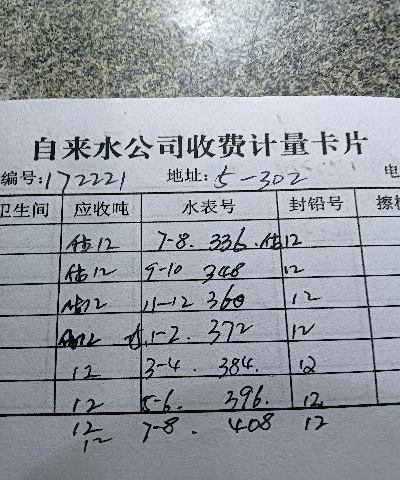 自来水公司收费计量卡片
编号:172221 地址:5-302 电
卫生间 应收吨 水表号 封铅号 擦
估12 7-8. 336. 估12
估12 9-10 348 12
估12 11-12 360 12
12 1-2. 372 12
12 3-4. 384. 12
12 5-6. 396. 12
12 7-8. 408 12
12